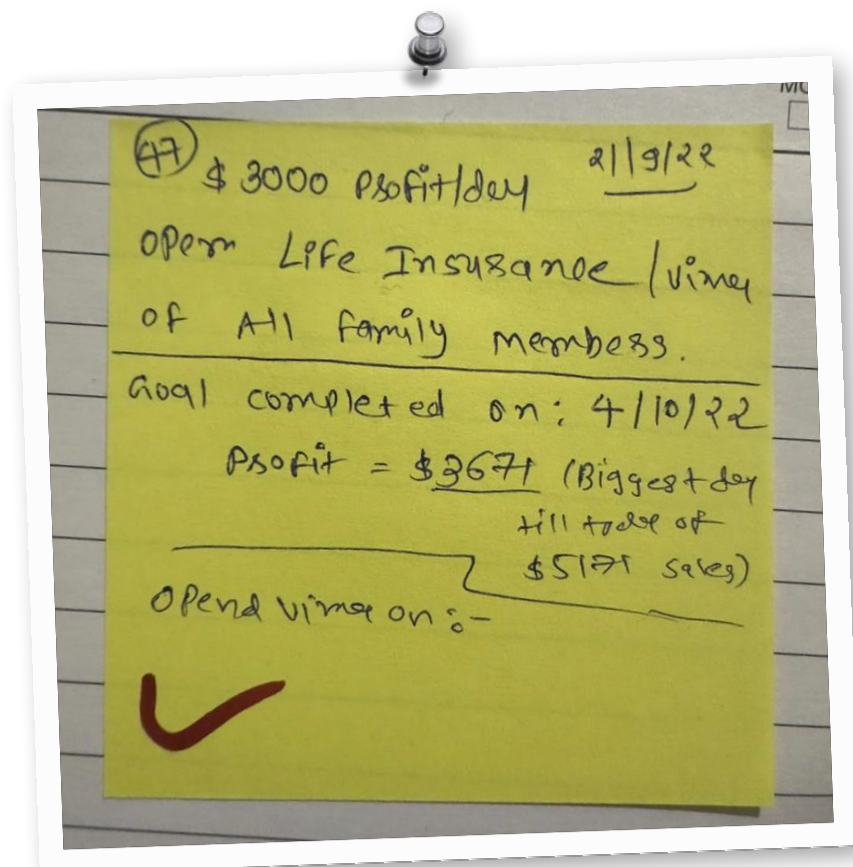 MO
47 $3000 profit/day 21/9/22
Open Life Insurance/vima
of All family members.
Goal completed on: 4/10/22
Profit = $3671 (Biggest day
till todae of
$5171 sales)
Opend vima on :-